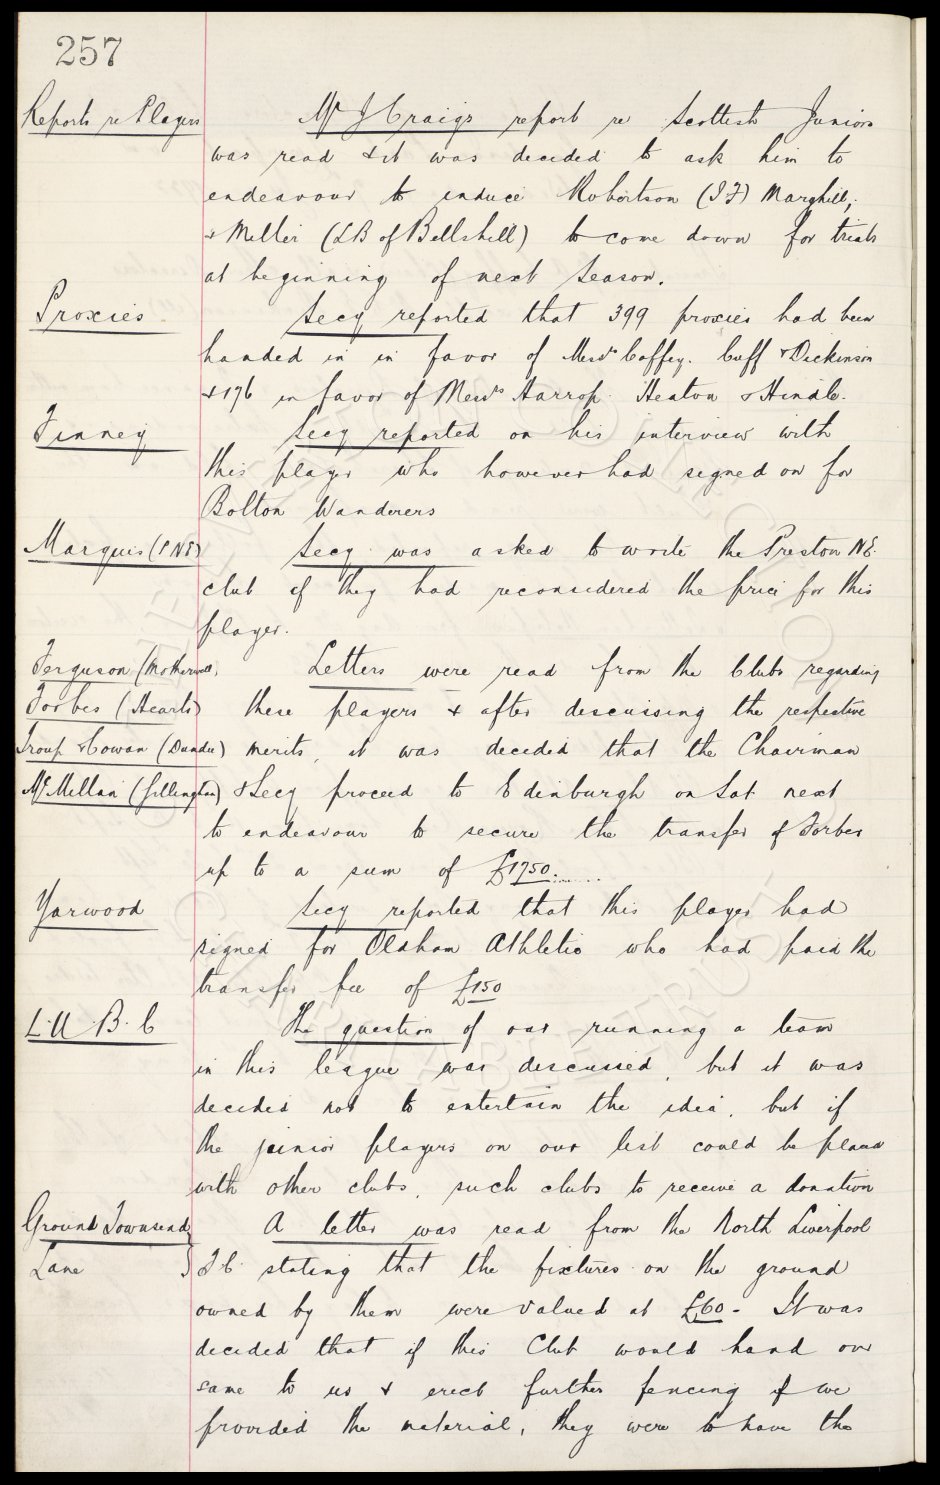 257
Reports re Players Mr J Craigs report re Scottish Juniors
was read & it was decided to ask him to
endeavour to induce Robertson (I F) Maryhill,
& Miller (LB of Bellshill) to come down for trials
at beginning of next season.
Proxies Secy reported that 399 proxies had been
handed in in favor of Messrs Coffey. Cuff & Dickinson
& 196 in favor of Messrs Harrop. Heaton & Hindle.
Finney Secy reported on his interview with
this player who however had signed on for
Bolton Wanderers
Marquis (P N E) Secy was asked to write the Preston N E.
club if they had reconsidered the price for this
player.
Ferguson (Motherwell, Letters were read from the Clubs regarding
Forbes (Hearts) these players & after discussing the respective
Troup & Cowan (Dundee) merits, it was decided that the Chairman
McMillan (Gillingham) & Secy proceed to Edinburgh on Sat next
to endeavour to secure the transfer of Forbes
up to a sum of £1750.
Yarwood Secy reported that this player had
signed for Oldham Athletic who had paid the
transfer fee of £150
L. U B. C The question of our running a team
in this league was discussed, but it was
decided not to entertain the idea, but if
the junior players on our list could be placed
with other clubs, such clubs to receive a donation
Ground Townsend A letter was read from the North Liverpool
Lane F C. stating that the fixtures on the ground
owned by them were valued at £60 - It was
decided that if this Club would hand over
same to us & erect further fencing if we
provided the material, they were to have the